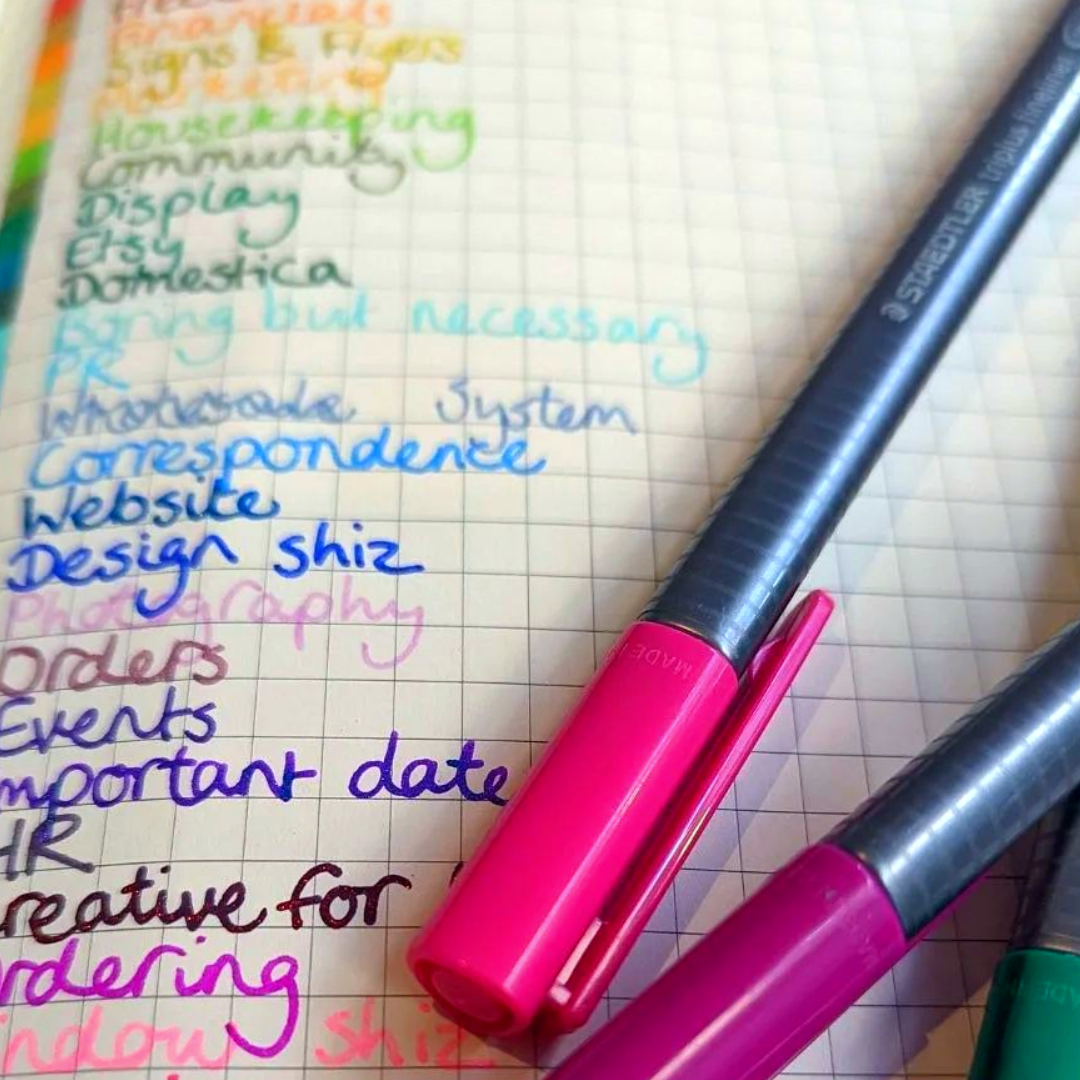 Financials
Signs & Flyers
Marketing
Housekeeping
Community
Display
Etsy
Domestica
Boring but necessary
PR
Wholesale System
Correspondence
Website
Design shiz
Photography
Orders
Events
mportant date
HR
reative for
rdering
indow shiz
STAEDTLER triplus fineliner
MADE IN